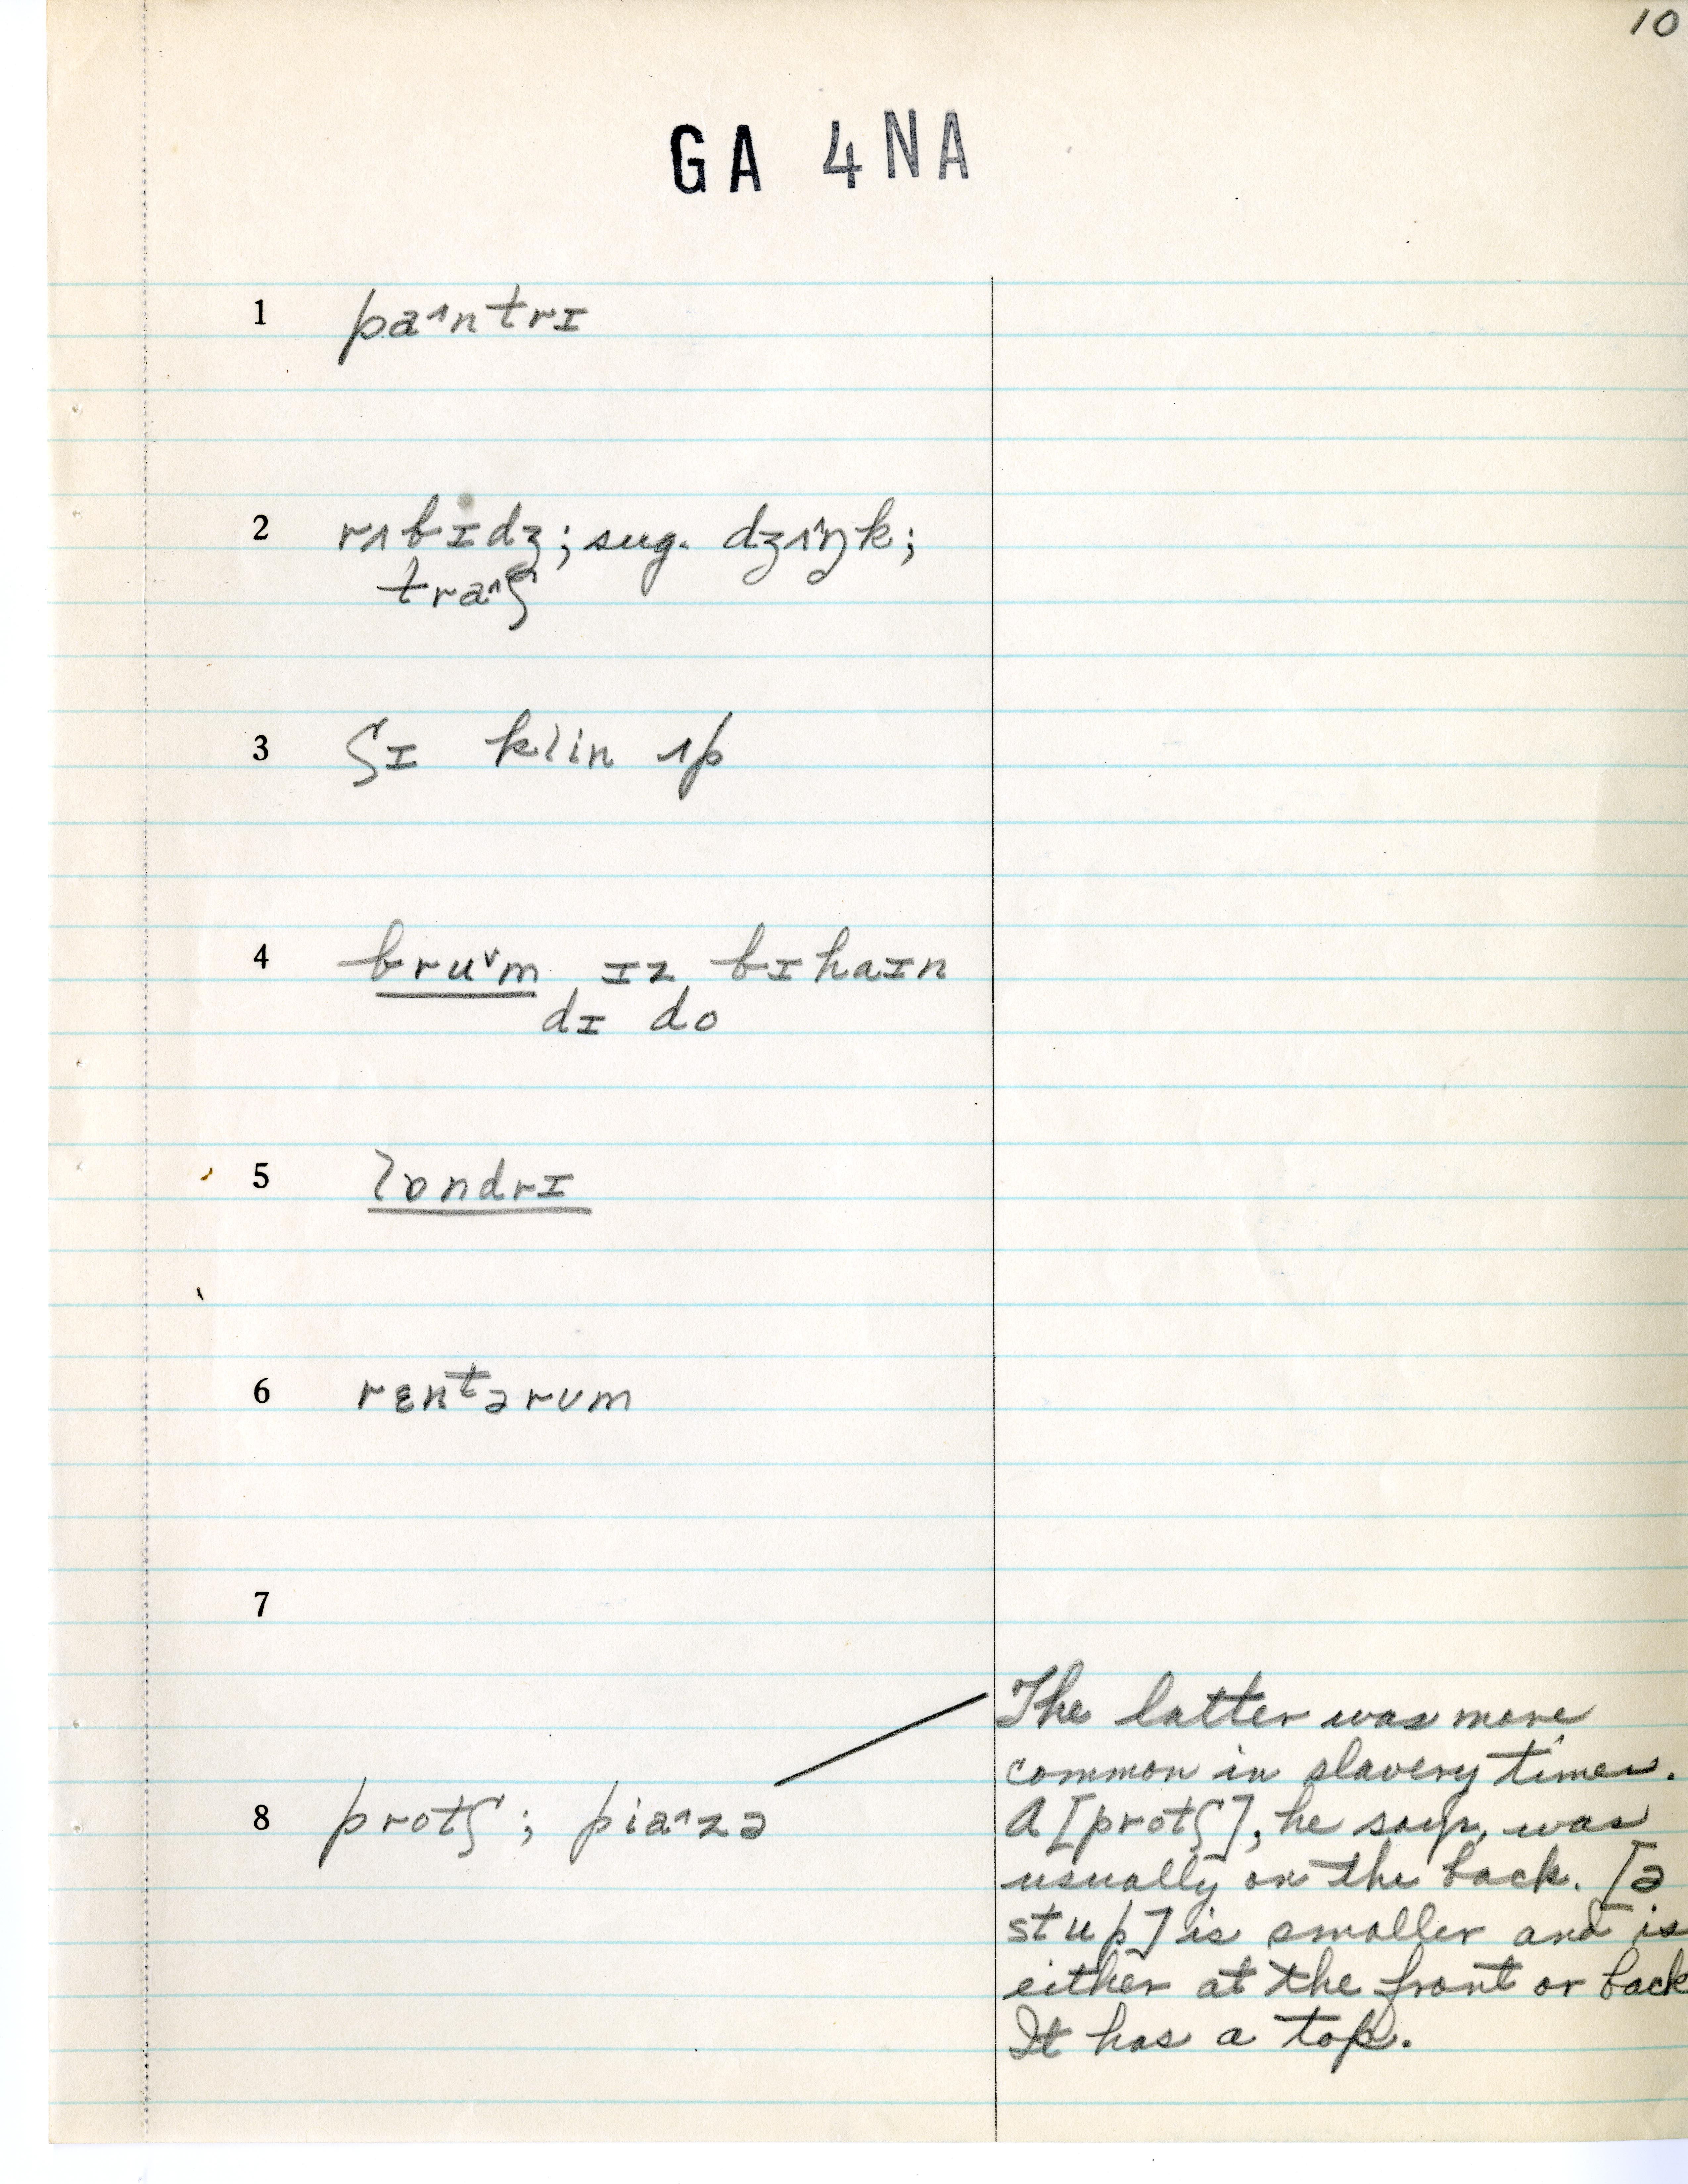 10
GA 4NA
1 pa˄ntrɪ
2 rʌbɪdʒ; sug. dʒʌ˄ŋk;
tra˄ʃ
3 ʃɪ klin ʌp
4 bru˅m ɪz bɪhaɪn
dɪ do
5 lɒndrɪ
6 rɛntərum
7
The latter was more
common in slavery times.
8 protʃ; pia˄zə A [protʃ], he says, was
usually on the back. [ə
stup] is smaller and is
either at the front or back
It has a top.